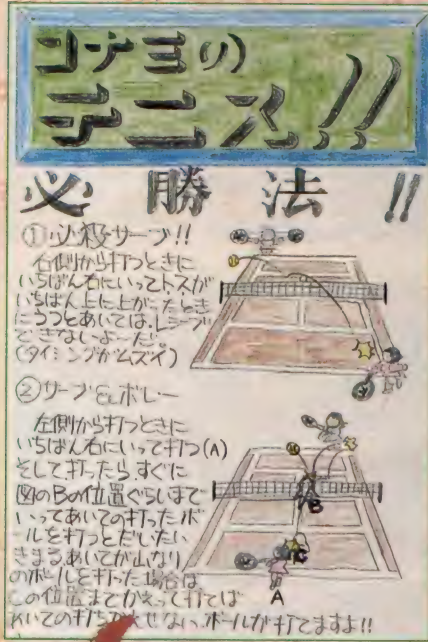 コナミの
テニス!!
必勝法!!
①必殺サーブ!!
右側から打つときに
いちばん右にいってトスが
いちばん上に上がったとき
にうつとあいては、レシーブ
できないよーだ。
(タイミングがムズイ)
②サーブ&ボレー
左側から打つときに
いちばん右にいって打つ(A)
そして、打ったら、すぐに
図のBの位置ぐらいまで
いってあいての打ったボ
ールを打つとだいたい
きまる。あいてが山なり
のボールを打った場合は
この位置までかえって打てば
あいての打ちかえせない、ボールが打てますよ!!
B
C
A